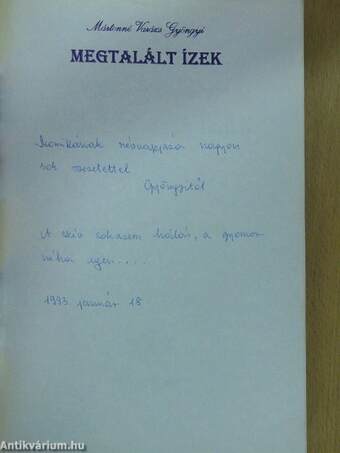 Mártonné Varázs Gyöngyi
MEGTALÁLT ÍZEK
Monikának névnapjára nagyon
sok szeretettel
Gyöngyitől
A szív sohasem hálás, a gyomor
néha igen....
1993. január 18
Antikvárium.hu